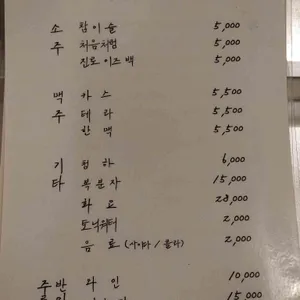 소 참이슬 5,000
주 처음처럼 5,000
진로이즈백 5,000
맥 카스 5,500
주 테라 5,500
한맥 5,500
기 청하 6,000
타 복분자 15,000
화요 28,000
토닉워터 2,000
음료 (사이다 / 콜라) 2,000
주반 와인 10,000
15,000